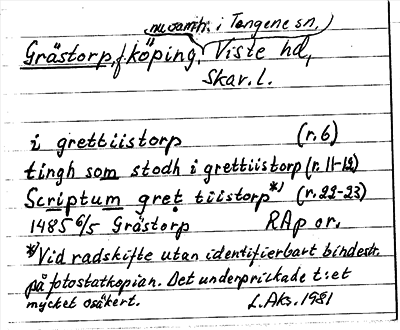 nu samh. i Tengene sn,
Grästorp, f köping, Viste hd,
Skar. l.
i grettiistorp (r. 6)
tingh som stodh i grettiistorp (r. 11-12)
Scriptum gret tiistorp*) (r. 22-23)
1485 6/5 Grästorp RAp or.
*) Vid radskifte utan identifierbart bindestr.
på fotostatkopian. Det underprickade t:et
mycket osäkert. L. Aks. 1981